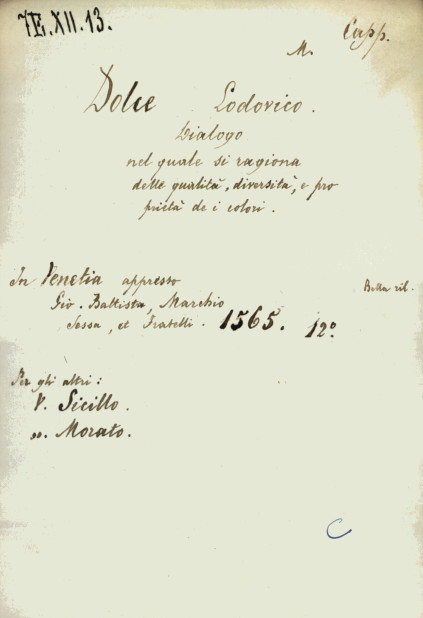 7E.XII.13.
M. Capp.
Dolce Lodovico.
Dialogo
nel quale si ragiona
delle qualità, diversità, e pro
prietà de i colori.
In Venetia appresso
Gio. Battista, Marchio
Sessa, et Fratelli. 1565. 12º
Per gli altri:
V. Sicillo.
„. Morato.
C